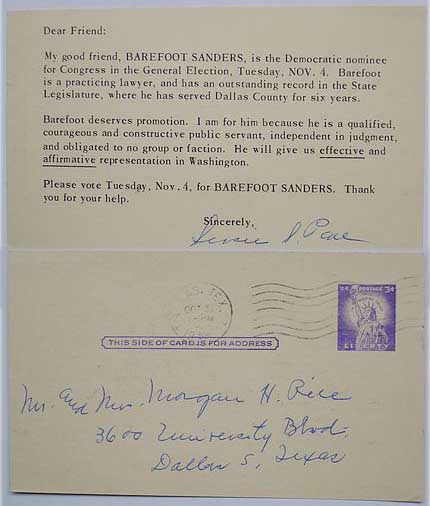 Dear Friend:
My good friend, BAREFOOT SANDERS, is the Democratic nominee
for Congress in the General Election, Tuesday, NOV. 4. Barefoot
is a practicing lawyer, and has an outstanding record in the State
Legislature, where he has served Dallas County for six years.
Barefoot deserves promotion. I am for him because he is a qualified,
courageous and constructive public servant, independent in judgment,
and obligated to no group or faction. He will give us effective and
affirmative representation in Washington.
Please vote Tuesday, Nov. 4, for BAREFOOT SANDERS. Thank
you for your help.
Sincerely,
U.S. POSTAGE 3¢
LIBERTY
THIS SIDE OF CARD IS FOR ADDRESS
Mr. and Mrs. Morgan H. Rice
3600 University Blvd.
Dallas 5, Texas